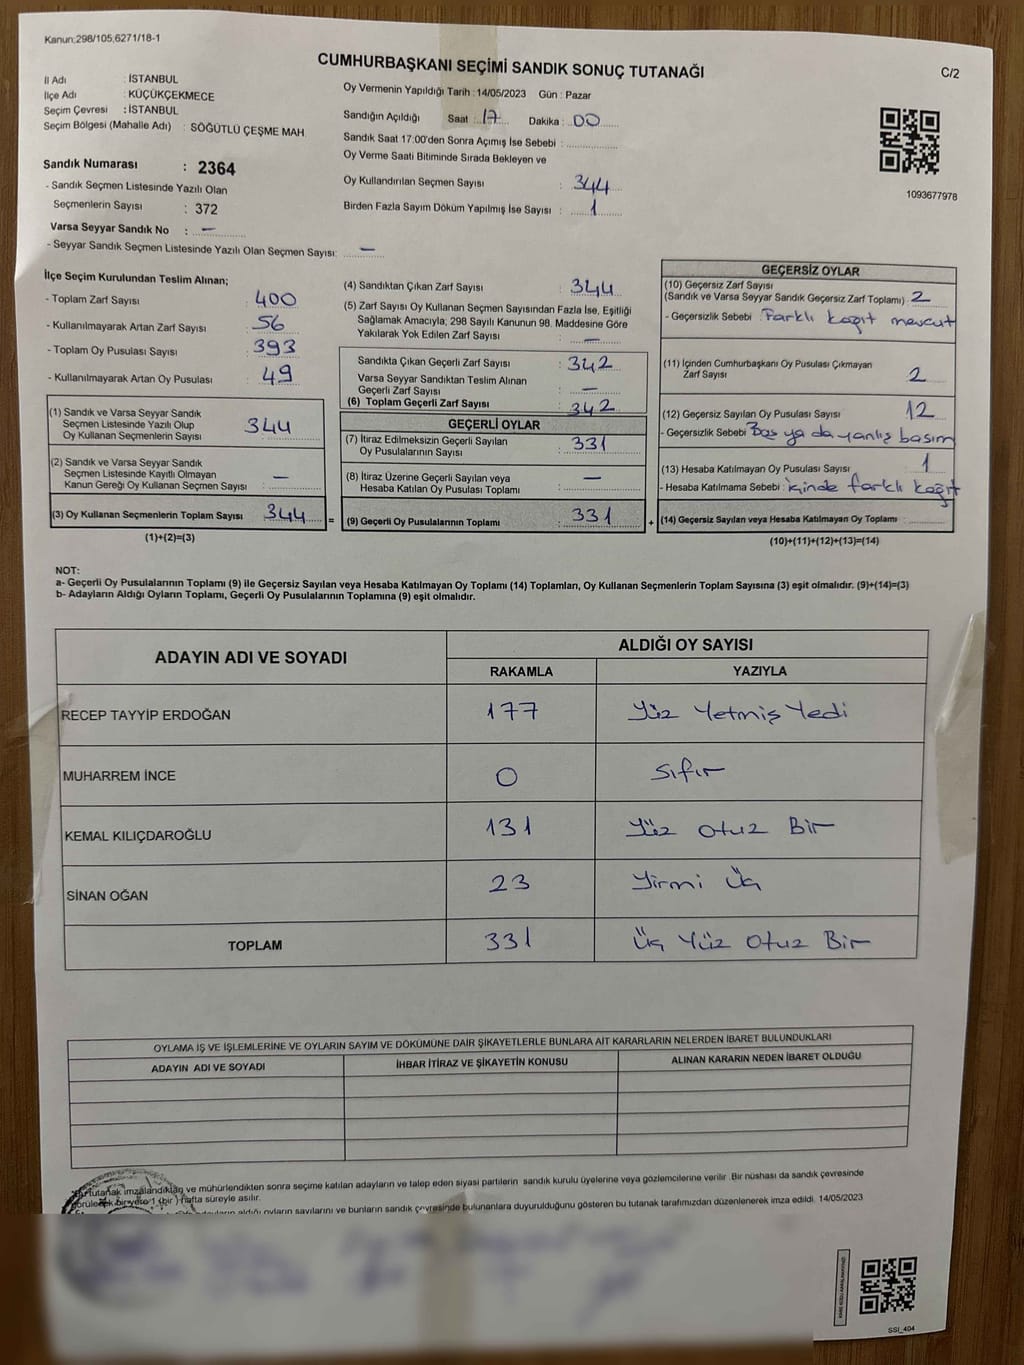 Kanun:298/105,6271/18-1
CUMHURBAŞKANI SEÇİMİ SANDIK SONUÇ TUTANAĞI
C/2
İl Adı : İSTANBUL
İlçe Adı : KÜÇÜKÇEKMECE
Seçim Çevresi : İSTANBUL
Seçim Bölgesi (Mahalle Adı) : SÖĞÜTLÜ ÇEŞME MAH.
Sandık Numarası : 2364
- Sandık Seçmen Listesinde Yazılı Olan
Seçmenlerin Sayısı : 372
Varsa Seyyar Sandık No : —
- Seyyar Sandık Seçmen Listesinde Yazılı Olan Seçmen Sayısı: —
Oy Vermenin Yapıldığı Tarih : 14/05/2023 Gün : Pazar
Sandığın Açıldığı Saat : 17 Dakika : 00
Sandık Saat 17:00'den Sonra Açımış İse Sebebi :
Oy Verme Saati Bitiminde Sırada Bekleyen ve
Oy Kullandırılan Seçmen Sayısı : 344
Birden Fazla Sayım Döküm Yapılmış İse Sayısı : 1
1093677978
İlçe Seçim Kurulundan Teslim Alınan;
- Toplam Zarf Sayısı : 400
- Kullanılmayarak Artan Zarf Sayısı : 56
- Toplam Oy Pusulası Sayısı : 393
- Kullanılmayarak Artan Oy Pusulası : 49
(1) Sandık ve Varsa Seyyar Sandık
Seçmen Listesinde Yazılı Olup
Oy Kullanan Seçmenlerin Sayısı : 344
(2) Sandık ve Varsa Seyyar Sandık
Seçmen Listesinde Kayıtlı Olmayan
Kanun Gereği Oy Kullanan Seçmen Sayısı : —
(3) Oy Kullanan Seçmenlerin Toplam Sayısı : 344 =
(1)+(2)=(3)
(4) Sandıktan Çıkan Zarf Sayısı : 344
(5) Zarf Sayısı Oy Kullanan Seçmen Sayısından Fazla İse, Eşitliği
Sağlamak Amacıyla; 298 Sayılı Kanunun 98. Maddesine Göre
Yakılarak Yok Edilen Zarf Sayısı : —
Sandıkta Çıkan Geçerli Zarf Sayısı : 342
Varsa Seyyar Sandıktan Teslim Alınan
Geçerli Zarf Sayısı : —
(6) Toplam Geçerli Zarf Sayısı : 342
GEÇERLİ OYLAR
(7) İtiraz Edilmeksizin Geçerli Sayılan
Oy Pusulalarının Sayısı : 331
(8) İtiraz Üzerine Geçerli Sayılan veya
Hesaba Katılan Oy Pusulası Toplamı : —
(9) Geçerli Oy Pusulalarının Toplamı : 331 +
GEÇERSİZ OYLAR
(10) Geçersiz Zarf Sayısı
(Sandık ve Varsa Seyyar Sandık Geçersiz Zarf Toplamı) : 2
- Geçersizlik Sebebi : Farklı kağıt mevcut
(11) İçinden Cumhurbaşkanı Oy Pusulası Çıkmayan
Zarf Sayısı : 2
(12) Geçersiz Sayılan Oy Pusulası Sayısı : 12
- Geçersizlik Sebebi : Boş ya da yanlış basım
(13) Hesaba Katılmayan Oy Pusulası Sayısı : 1
- Hesaba Katılmama Sebebi : içinde farklı kağıt
(14) Geçersiz Sayılan veya Hesaba Katılmayan Oy Toplamı :
(10)+(11)+(12)+(13)=(14)
NOT:
a- Geçerli Oy Pusulalarının Toplamı (9) ile Geçersiz Sayılan veya Hesaba Katılmayan Oy Toplamı (14) Toplamları, Oy Kullanan Seçmenlerin Toplam Sayısına (3) eşit olmalıdır. (9)+(14)=(3)
b- Adayların Aldığı Oyların Toplamı, Geçerli Oy Pusulalarının Toplamına (9) eşit olmalıdır.
ADAYIN ADI VE SOYADI ALDIĞI OY SAYISI
RAKAMLA YAZIYLA
RECEP TAYYİP ERDOĞAN 177 Yüz Yetmiş Yedi
MUHARREM İNCE 0 Sıfır
KEMAL KILIÇDAROĞLU 131 Yüz Otuz Bir
SİNAN OĞAN 23 Yirmi Üç
TOPLAM 331 Üç Yüz Otuz Bir
OYLAMA İŞ VE İŞLEMLERİNE VE OYLARIN SAYIM VE DÖKÜMÜNE DAİR ŞİKAYETLERLE BUNLARA AİT KARARLARIN NELERDEN İBARET BULUNDUKLARI
ADAYIN ADI VE SOYADI İHBAR İTİRAZ VE ŞİKAYETİN KONUSU ALINAN KARARIN NEDEN İBARET OLDUĞU
tutanak imzalandıktan ve mühürlendikten sonra seçime katılan adayların ve talep eden siyasi partilerin sandık kurulu üyelerine veya gözlemcilerine verilir. Bir nüshası da sandık çevresinde
görülecek bir yere 1 (bir) hafta süreyle asılır.
aldığı oyların sayılarını ve bunların sandık çevresinde bulunanlara duyurulduğunu gösteren bu tutanak tarafımızdan düzenlenerek imza edildi. 14/05/2023
SSI_404